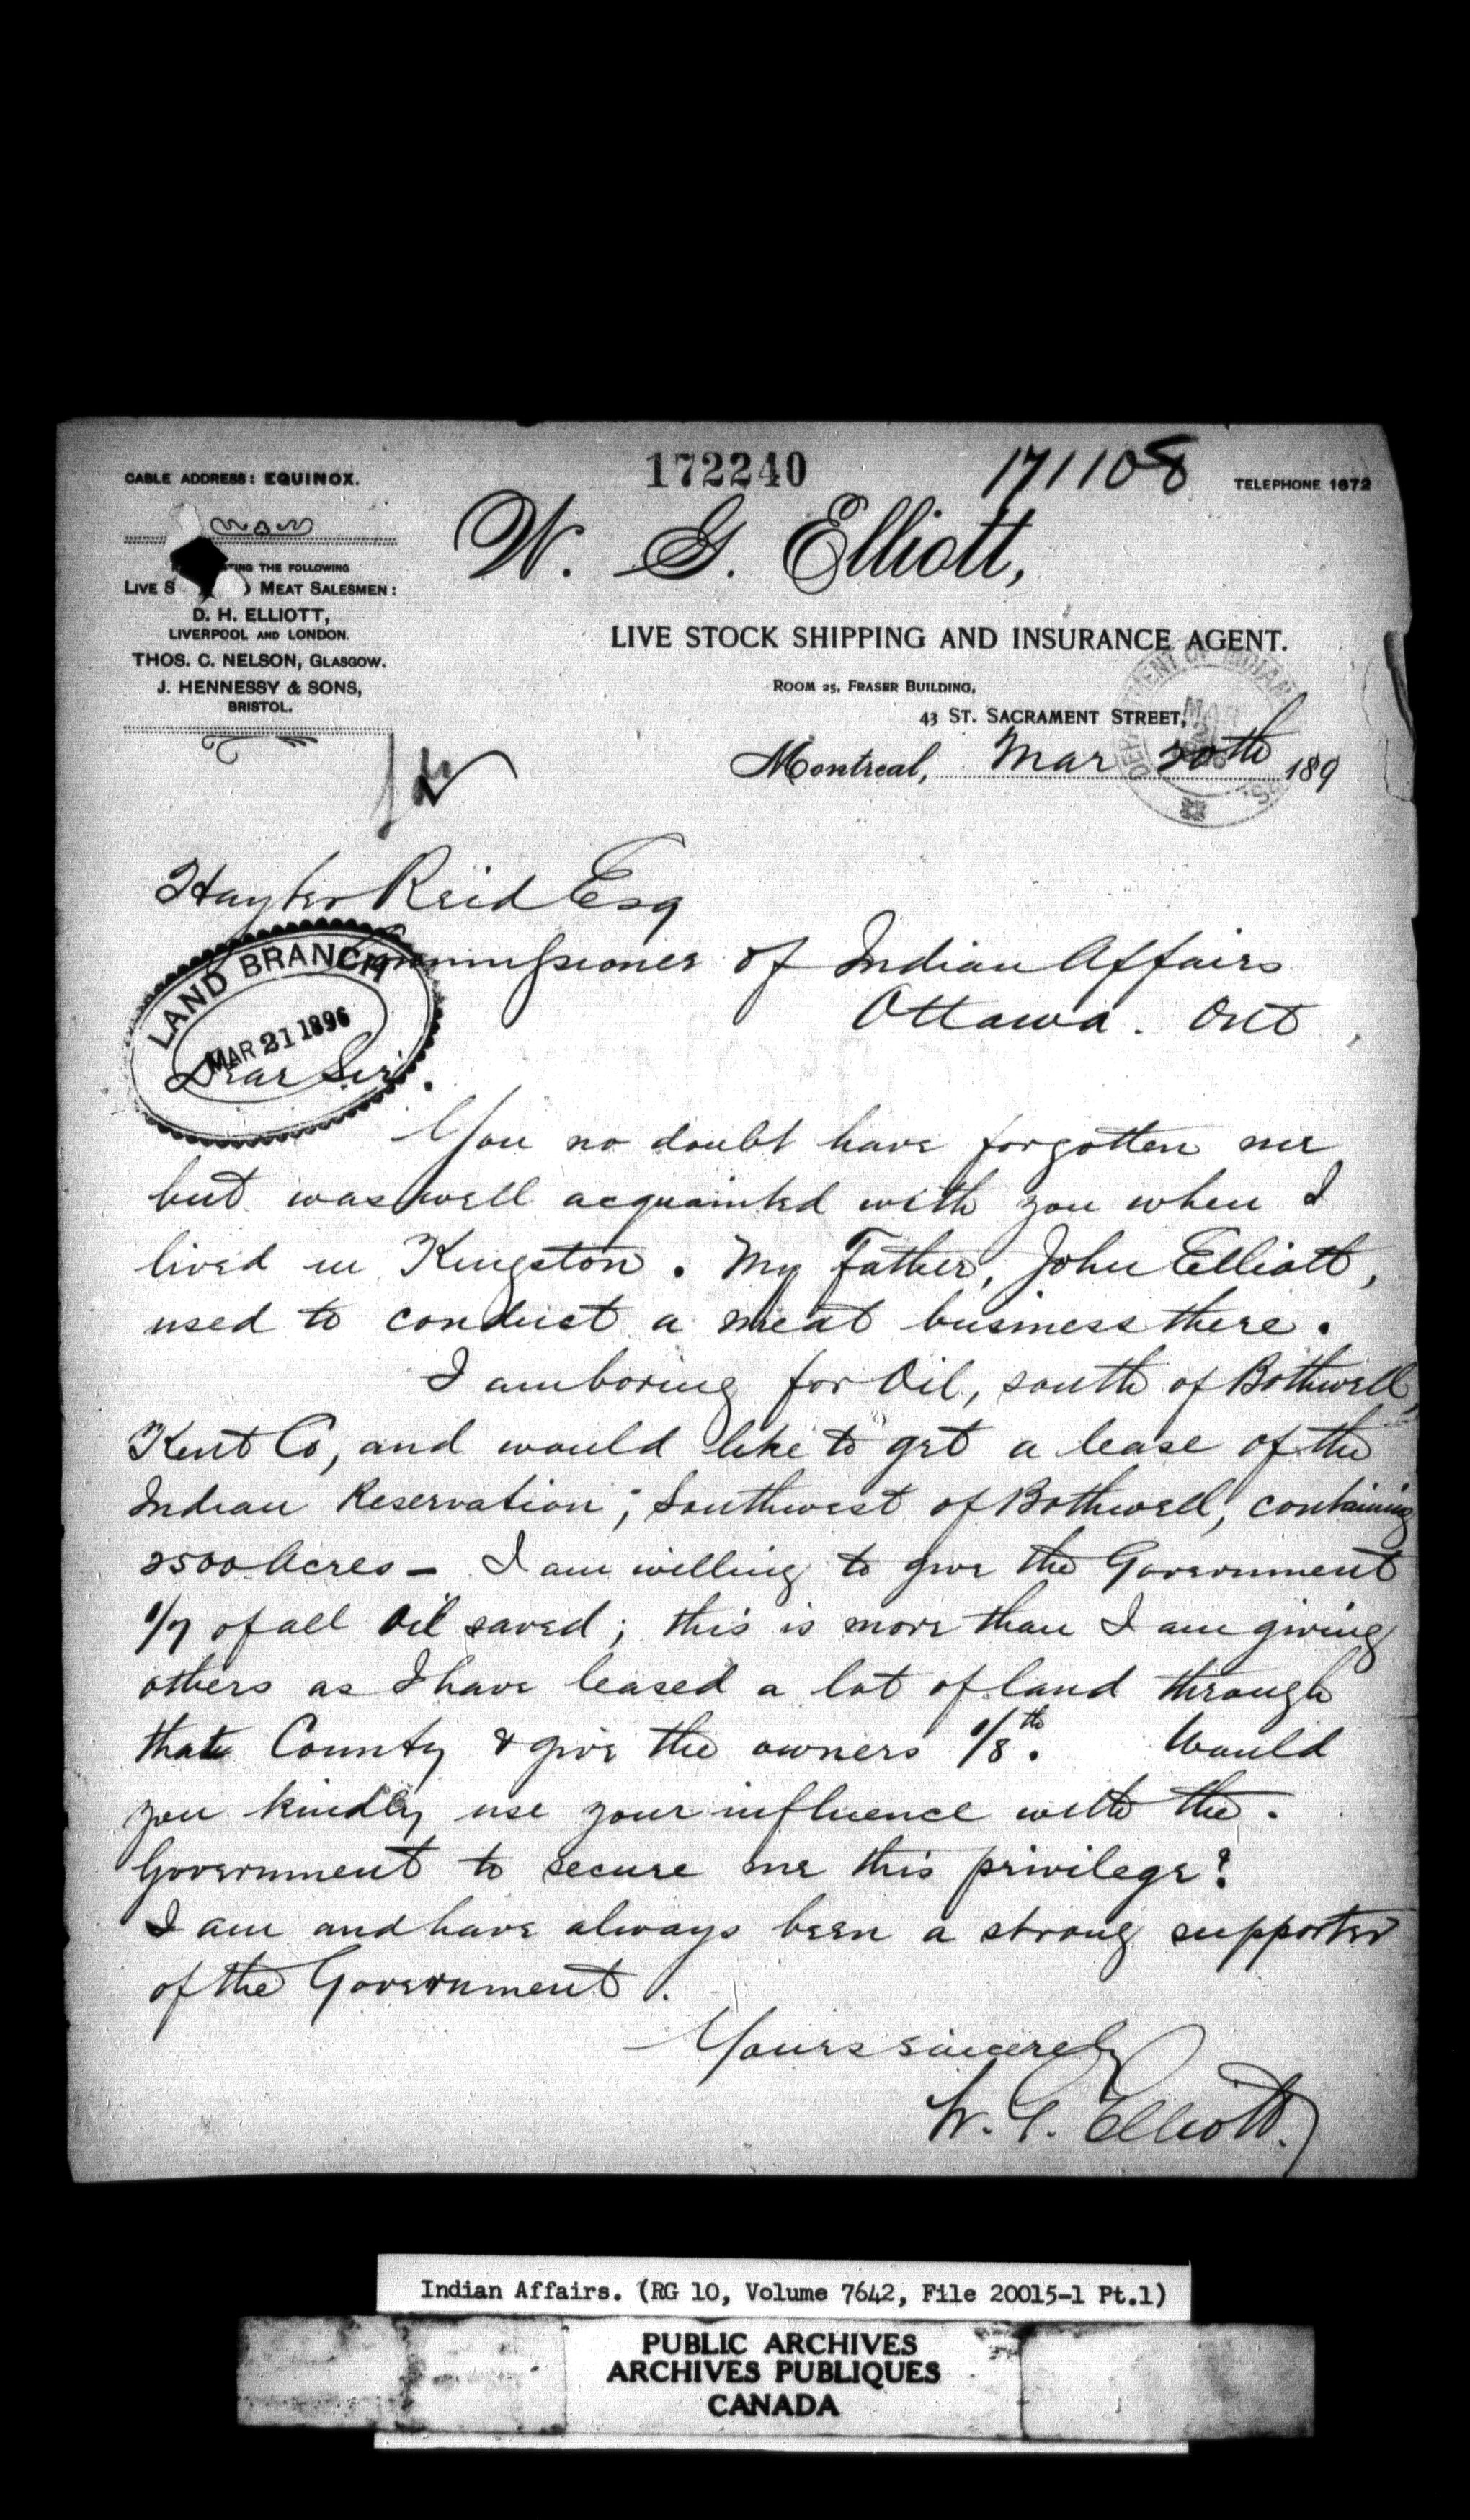 172240
171108
CABLE ADDRESS: EQUINOX.
TELEPHONE 1672
W. G. Elliott,
TING THE FOLLOWING
LIVE S MEAT SALESMEN:
D. H. ELLIOTT,
LIVERPOOL AND LONDON.
THOS. C. NELSON, GLASGOW.
J. HENNESSY & SONS,
BRISTOL.
LIVE STOCK SHIPPING AND INSURANCE AGENT.
ROOM 25, FRASER BUILDING,
43 ST. SACRAMENT STREET,
Montreal, Mar 20th 189
Hayter Reid Esq
Commissioner of Indian Affairs
Ottawa. Ont
LAND BRANCH
MAR 21 1896
Dear Sir.
You no doubt have forgotten me
but was well acquainted with you when I
lived in Kingston. My Father, John Elliott,
used to conduct a meat business there.
I am boring for Oil, south of Bothwell,
Kent Co, and would like to get a lease of the
Indian Reservation; Southwest of Bothwell, containing
2500 Acres - I am willing to give the Government
1/7 of all Oil saved; this is more than I am giving
others as I have leased a lot of land through
that County & give the owners 1/8th. Would
you kindly use your influence with the.
Government to secure me this privilege?
I am and have always been a strong supporter
of the Government.
Yours sincerely
W. G. Elliott.
Indian Affairs. (RG 10, Volume 7642, File 20015-1 Pt.1)
PUBLIC ARCHIVES
ARCHIVES PUBLIQUES
CANADA